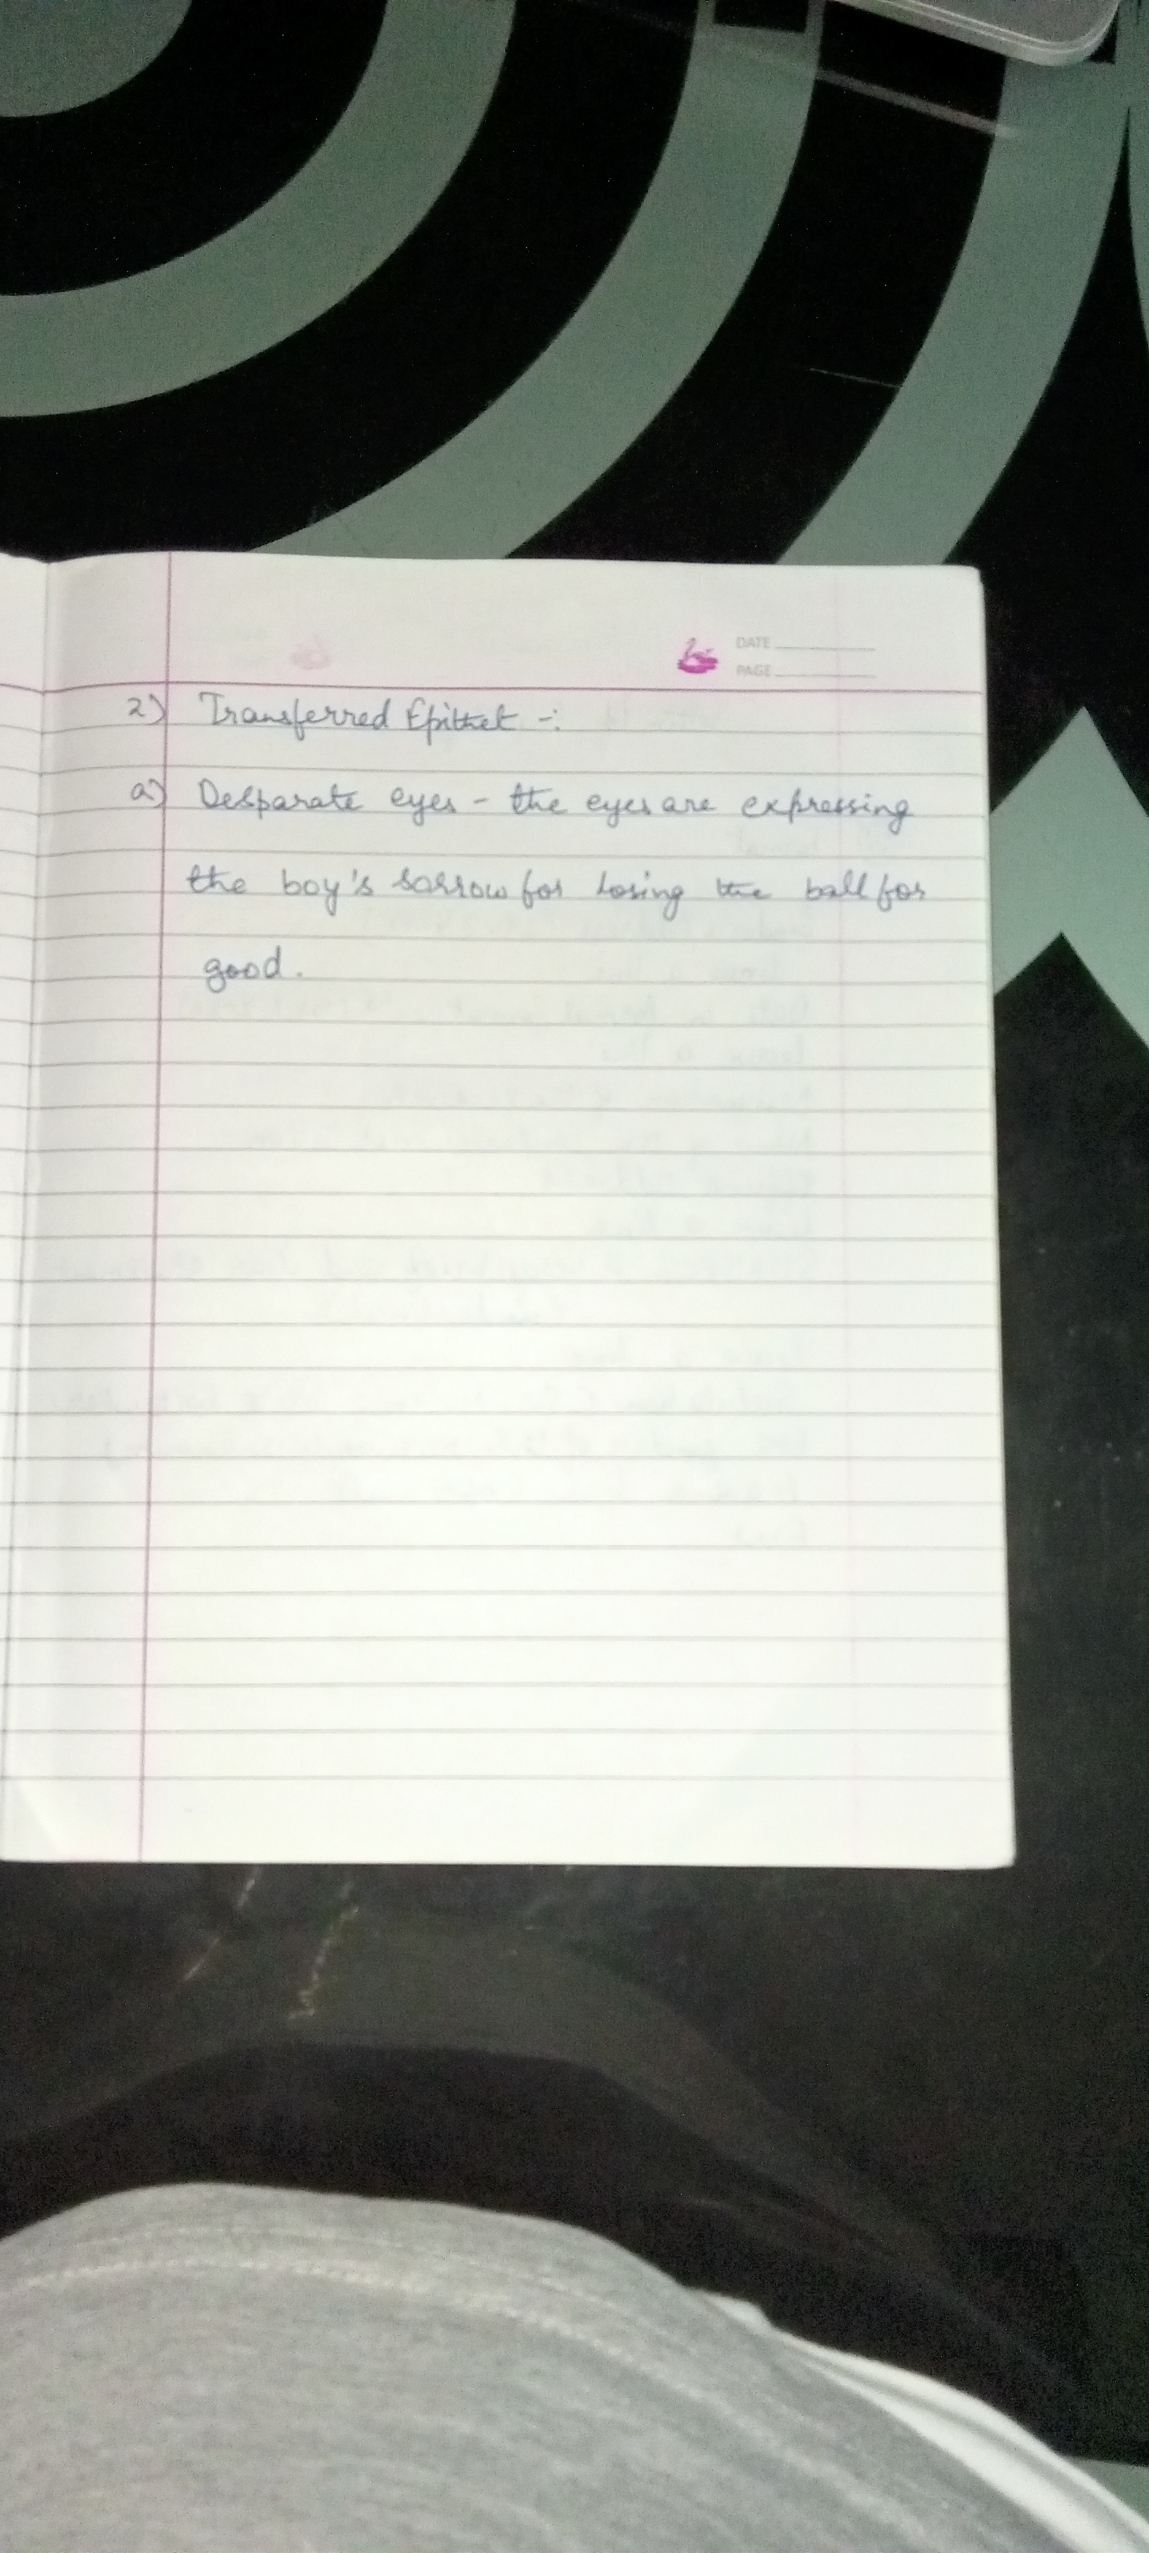 DATE
PAGE
2) Transferred Epithet -:
a) Desparate eyes - the eyes are expressing
the boy's sorrow for losing the ball for
good.